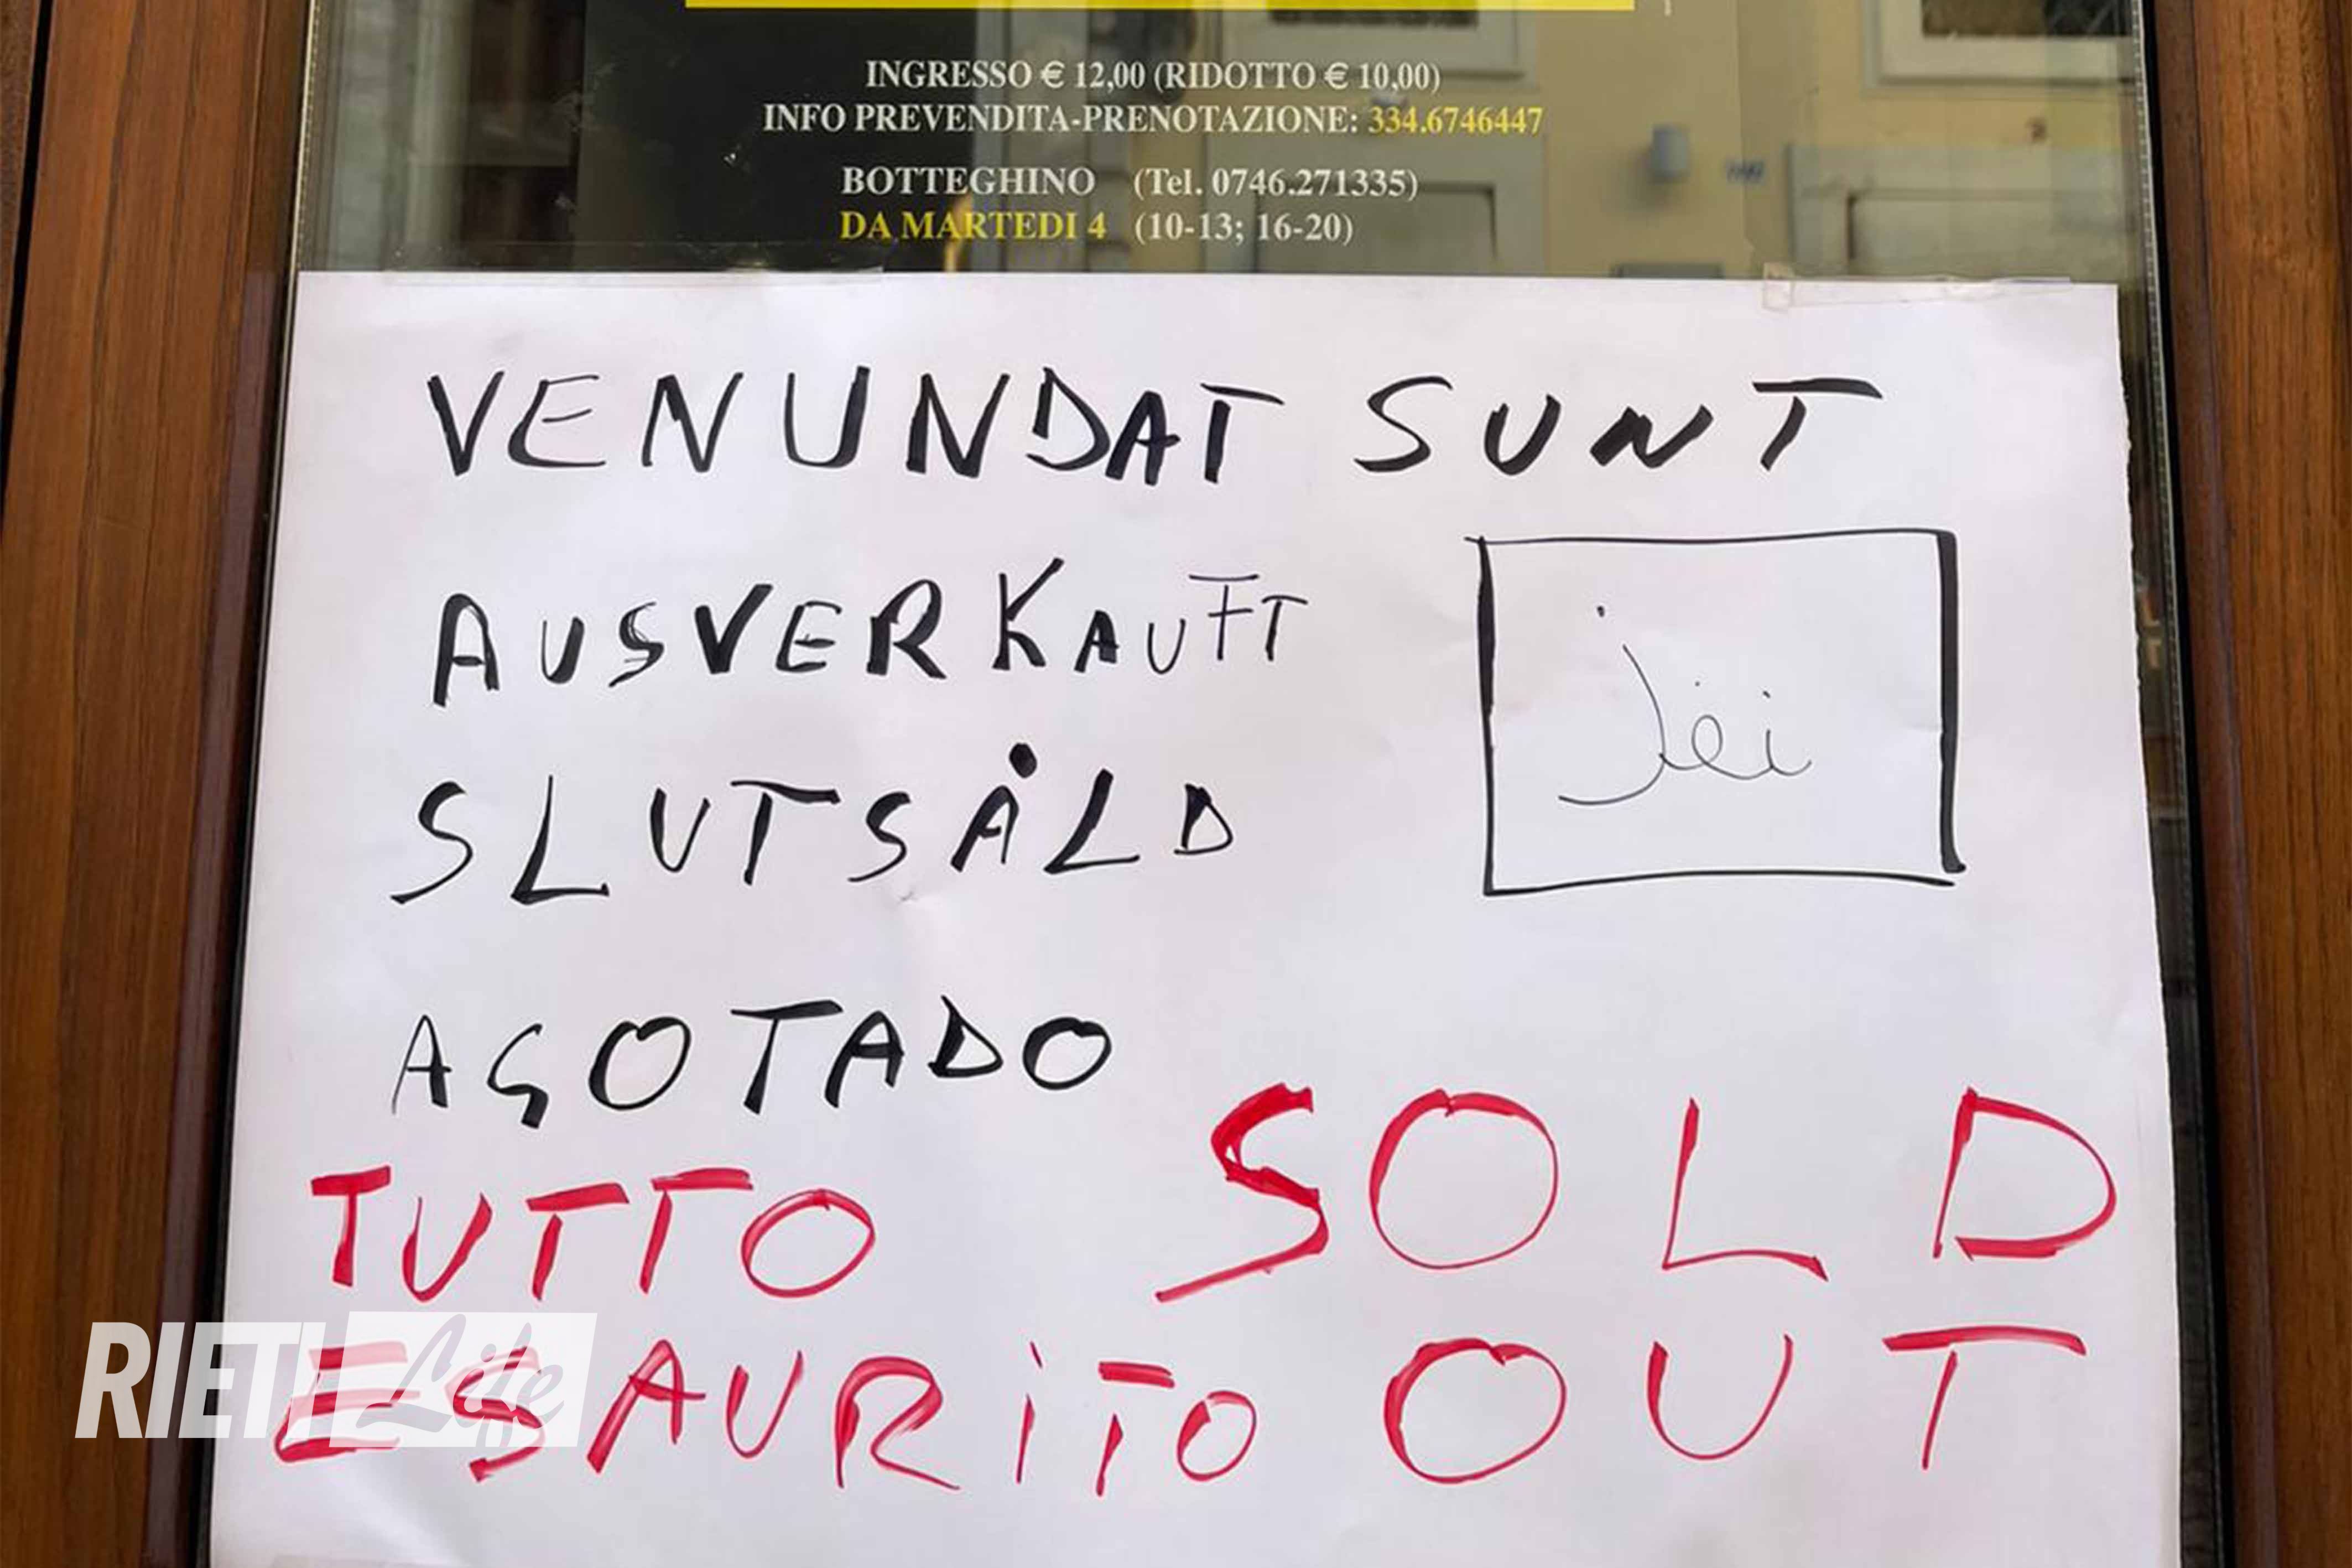 INGRESSO € 12,00 (RIDOTTO € 10,00)
INFO PREVENDITA-PRENOTAZIONE: 334.6746447
BOTTEGHINO (Tel. 0746.271335)
DA MARTEDI 4 (10-13; 16-20)
VENUNDAT SUNT
AUSVERKAUFT
SLUTSÅLD
AGOTADO
TUTTO
ESAURiTO
SOLD
OUT
RIETI Life